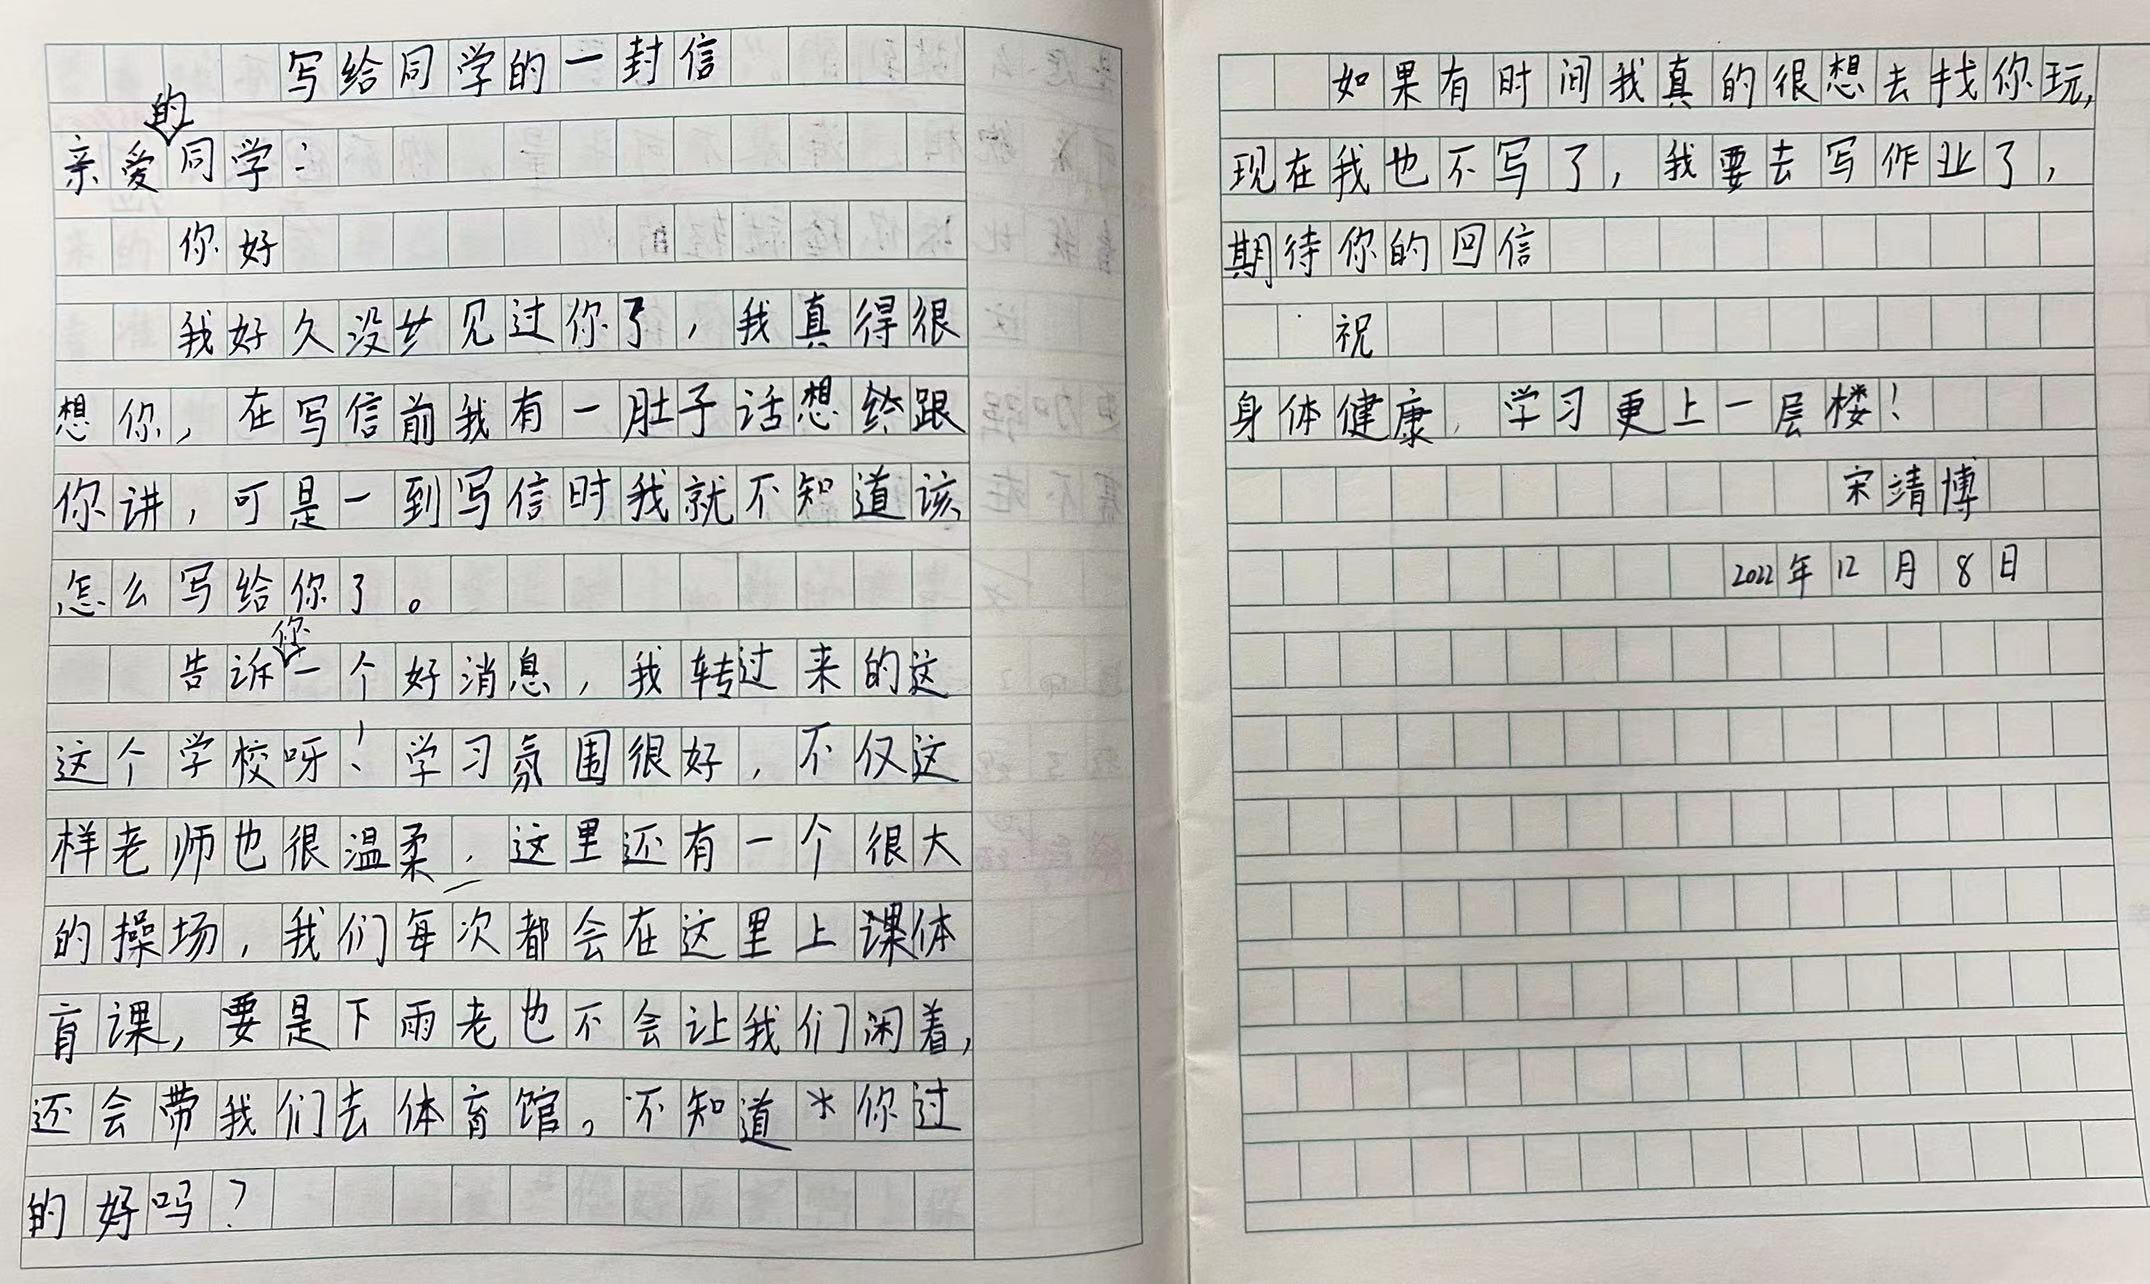 写给同学的一封信
亲爱的同学：
你好
我好久没见过你了，我真得很
想你，在写信前我有一肚子话想跟
你讲，可是一到写信时我就不知道该
怎么写给你了。
告诉你一个好消息，我转过来的这
这个学校呀！学习氛围很好，不仅这
样老师也很温柔，这里还有一个很大
的操场，我们每次都会在这里上课体
育课，要是下雨老也不会让我们闲着，
还会带我们去体育馆。不知道你过
的好吗？
如果有时间我真的很想去找你玩，
现在我也不写了，我要去写作业了，
期待你的回信
祝
身体健康，学习更上一层楼！
宋靖博
2022年12月8日